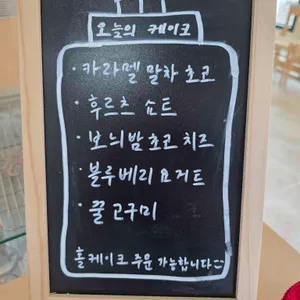 오늘의 케이크
· 카라멜 말차 초코
· 후르츠 쇼트
· 보늬밤 초코 치즈
· 블루베리 요거트
· 꿀 고구미
홀케이크 주문 가능합니다